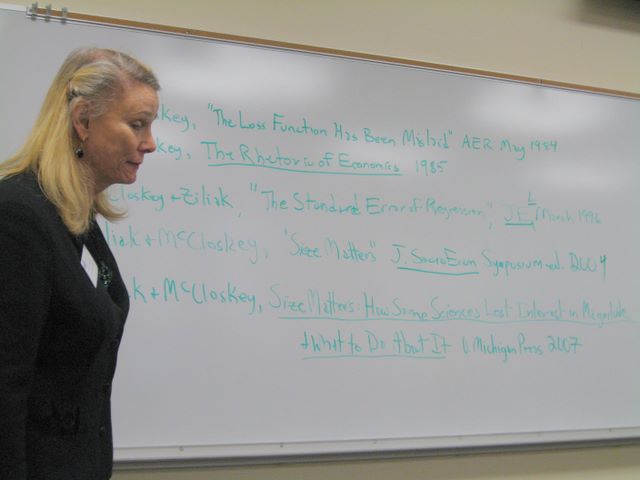 skey, "The Loss Function Has Been Mislaid" AER May 1984
key, The Rhetoric of Economics 1985
Closkey + Ziliak, "The Standard Error of Regression," JEL March 1996
liak + McCloskey, "Size Matters" J. SocioEcon Symposium ed. 2004
k + McCloskey, Size Matters: How Some Sciences Lost Interest in Magnitude
+ What to Do About It U Michigan Press 2007